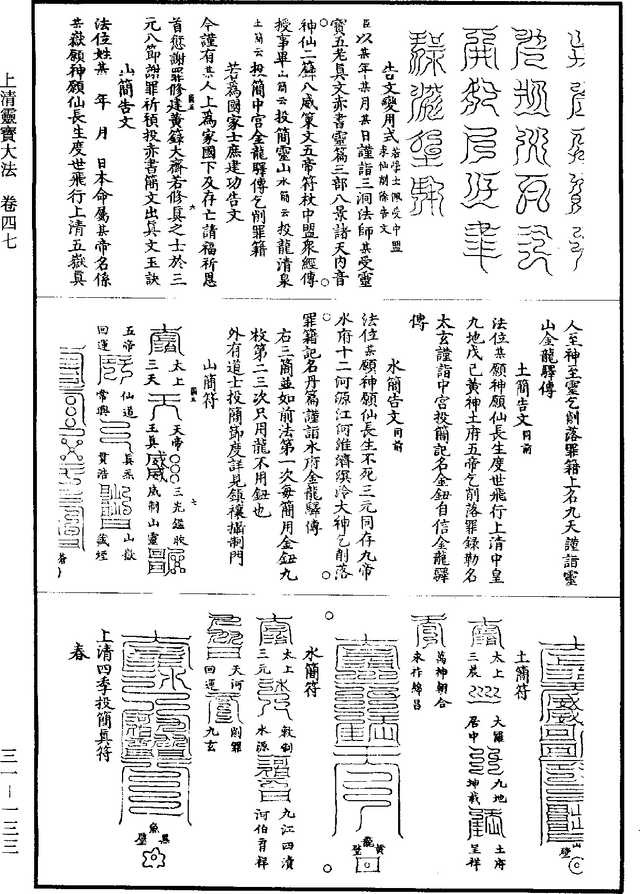 告文變用式若學士佩受中盟求仙削除告文
臣以某年某月某日謹詣三洞法師某受靈
寳五老真文赤書靈篇三部八景諸天内音
神仙二籙八威策文五帝符杖中盟衆經傳
授事畢山簡云投簡靈山水簡云投龍清泉
土簡云投簡中宫金龍驛傳乞削罪籍
若爲國家士庶建功告文
今謹有某人上爲家國下及存亡請福祈恩
首愆謝罪修建黄籙大齋若修真之士於三
元八節謝罪祈禎投赤書簡文出真文玉訣
山簡告文
法位姓某 年 月 日本命屬某帝名係
某嶽願神願仙長生度世飛行上清五嶽真
人至神至靈乞削落罪籍上名九天謹詣靈
山金龍驛傳
土簡告文同前
法位某願神願仙長生度世飛行上清中皇
九地戊己黄神土府五帝乞削落罪録勒名
太玄謹詣中宫投簡記名金鈕自信金龍驛
傳
水簡告文同前
法位某願神願仙長生不死三元同存九帝
水府十二河源江河淮濟溟泠大神乞削落
罪籍記名丹篇謹詣水府金龍驛傳
右三簡並如前法第一次每簡用金鈕九
枚第二三次只用龍不用鈕也
外有道士投簡節度詳見鎮禳攝制門
山簡符
太上
三天
天帝
玉真
三光鑑映
威制山靈
五帝
回運
仙道
常興
真炁
貫浩
山嶽
藏堙
山
壁
土簡符
太上
三晨
大羅
居中
九地
坤載
土府
呈祥
萬神朝合
永祚錦昌
黄
龍
壁
水簡符
太上
三元
敕制
水源
九江四瀆
河伯育祥
天河
回運
削罪
九玄
黑
魚
壁
上清四季投簡真符
春
上清靈寳大法 卷四七
三一—一三三